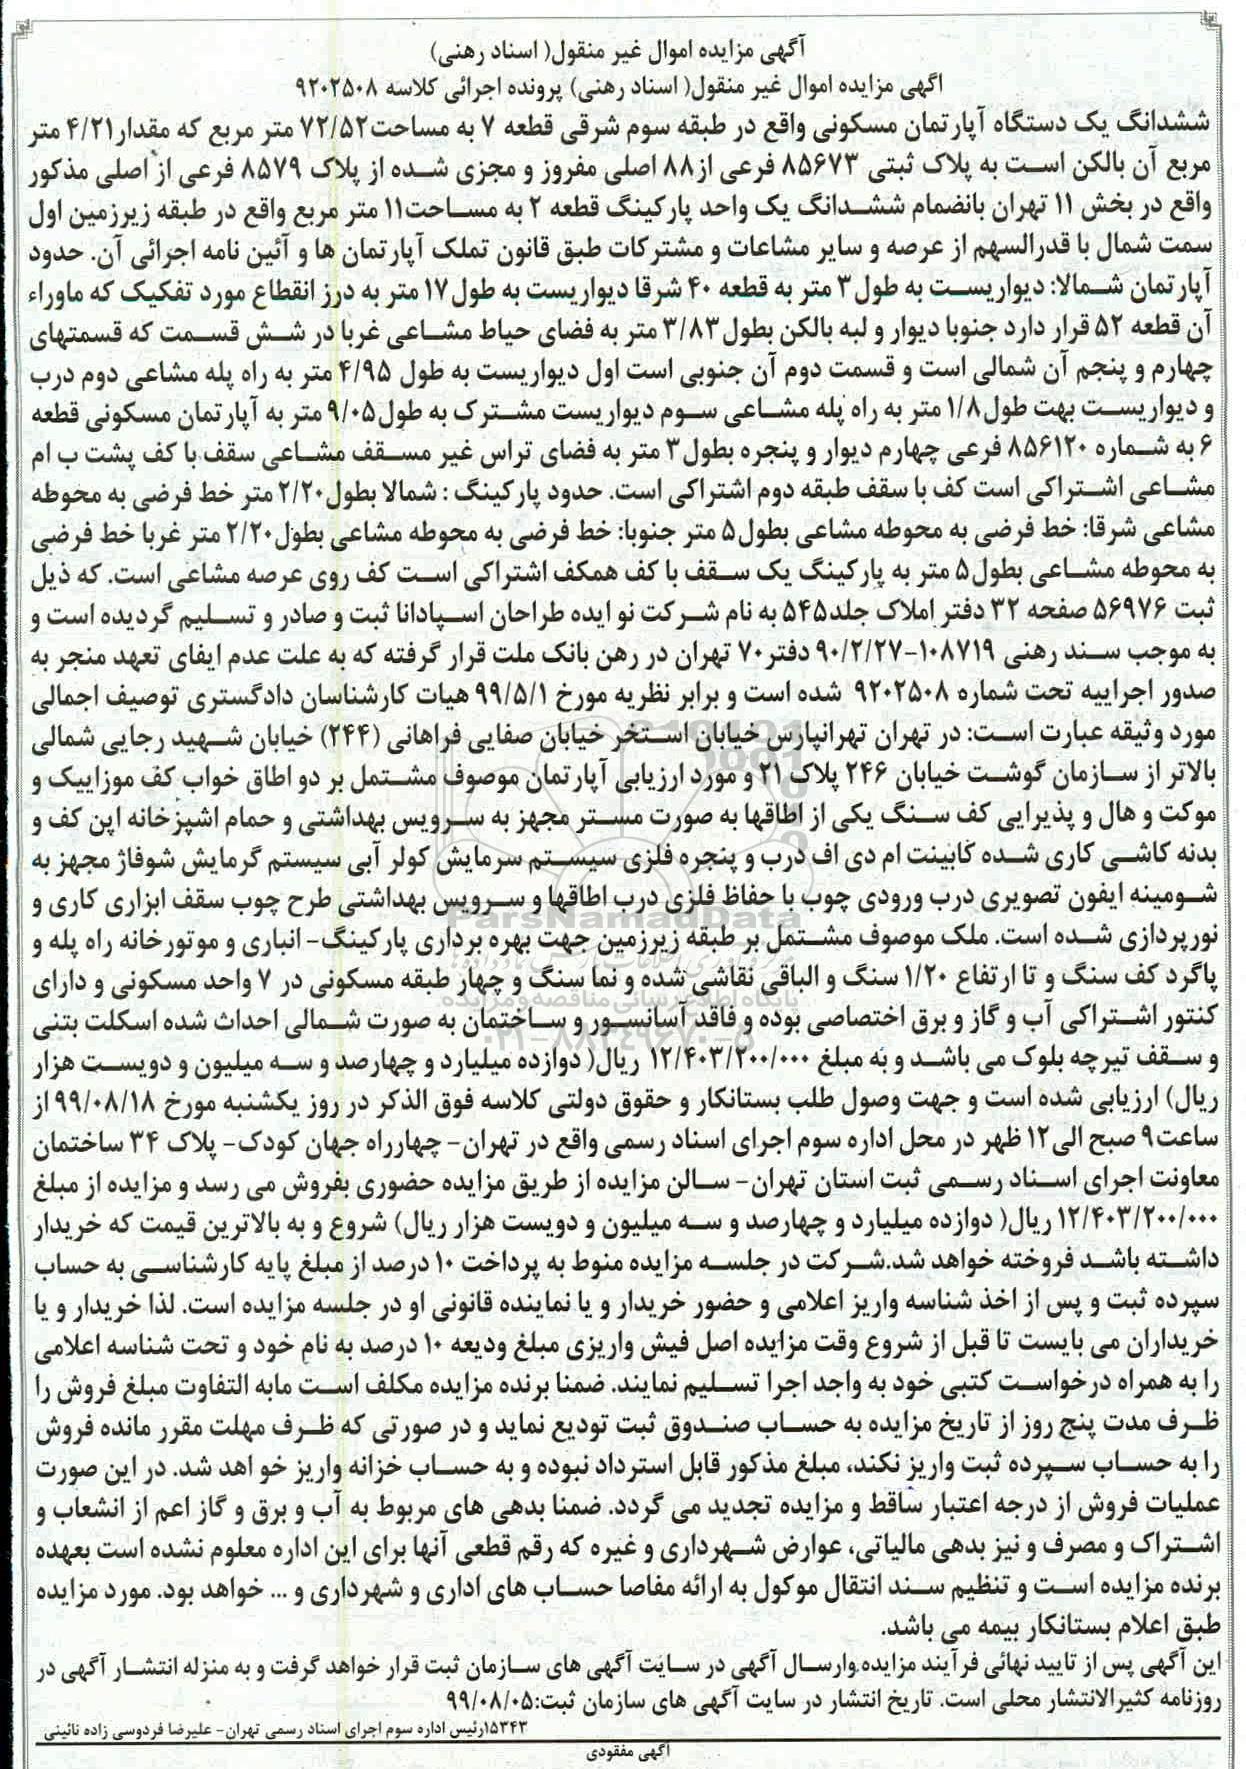 آگهی مزایده اموال غیر منقول( اسناد رهنی)
اگهی مزایده اموال غیر منقول( اسناد رهنی) پرونده اجرائی کلاسه ۹۲۰۲۵۰۸
ششدانگ یک دستگاه آپارتمان مسکونی واقع در طبقه سوم شرقی قطعه ۷ به مساحت۷۲/۵۲ متر مربع که مقدار۴/۲۱ متر
مربع آن بالکن است به پلاک ثبتی ۸۵۶۷۳ فرعی از۸۸ اصلی مفروز و مجزی شده از پلاک ۸۵۷۹ فرعی از اصلی مذکور
واقع در بخش ۱۱ تهران بانضمام ششدانگ یک واحد پارکینگ قطعه ۲ به مساحت۱۱ متر مربع واقع در طبقه زیرزمین اول
سمت شمال با قدرالسهم از عرصه و سایر مشاعات و مشترکات طبق قانون تملک آپارتمان ها و آئین نامه اجرائی آن. حدود
آپارتمان شمالا: دیواریست به طول۳ متر به قطعه ۴۰ شرقا دیواریست به طول۱۷ متر به درز انقطاع مورد تفکیک که ماوراء
آن قطعه ۵۲ قرار دارد جنوبا دیوار و لبه بالکن بطول۳/۸۳ متر به فضای حیاط مشاعی غربا در شش قسمت که قسمتهای
چهارم و پنجم آن شمالی است و قسمت دوم آن جنوبی است اول دیواریست به طول ۴/۹۵ متر به راه پله مشاعی دوم درب
و دیواریست بهت طول۱/۸ متر به راه پله مشاعی سوم دیواریست مشترک به طول۹/۰۵ متر به آپارتمان مسکونی قطعه
۶ به شماره ۸۵۶۱۲۰ فرعی چهارم دیوار و پنجره بطول۳ متر به فضای تراس غیر مسقف مشاعی سقف با کف پشت ب ام
مشاعی اشتراکی است کف با سقف طبقه دوم اشتراکی است. حدود پارکینگ : شمالا بطول۲/۲۰ متر خط فرضی به محوطه
مشاعی شرقا: خط فرضی به محوطه مشاعی بطول۵ متر جنوبا: خط فرضی به محوطه مشاعی بطول۲/۲۰ متر غربا خط فرضی
به محوطه مشاعی بطول۵ متر به پارکینگ یک سقف با کف همکف اشتراکی است کف روی عرصه مشاعی است. که ذیل
ثبت ۵۶۹۷۶ صفحه ۳۲ دفتر املاک جلد۵۴۵ به نام شرکت نو ایده طراحان اسپادانا ثبت و صادر و تسلیم گردیده است و
به موجب سند رهنی ۱۰۸۷۱۹-۹۰/۲/۲۷ دفتر۷۰ تهران در رهن بانک ملت قرار گرفته که به علت عدم ایفای تعهد منجر به
صدور اجراییه تحت شماره ۹۲۰۲۵۰۸ شده است و برابر نظریه مورخ ۹۹/۵/۱ هیات کارشناسان دادگستری توصیف اجمالی
مورد وثیقه عبارت است: در تهران تهرانپارس خیابان استخر خیابان صفایی فراهانی (۲۴۴) خیابان شهید رجایی شمالی
بالاتر از سازمان گوشت خیابان ۲۴۶ پلاک ۲۱ و مورد ارزیابی آپارتمان موصوف مشتمل بر دو اطاق خواب کف موزاییک و
موکت و هال و پذیرایی کف سنگ یکی از اطاقها به صورت مستر مجهز به سرویس بهداشتی و حمام اشپزخانه اپن کف و
بدنه کاشی کاری شده کابینت ام دی اف درب و پنجره فلزی سیستم سرمایش کولر آبی سیستم گرمایش شوفاژ مجهز به
شومینه ایفون تصویری درب ورودی چوب با حفاظ فلزی درب اطاقها و سرویس بهداشتی طرح چوب سقف ابزاری کاری و
نورپردازی شده است. ملک موصوف مشتمل بر طبقه زیرزمین جهت بهره برداری پارکینگ- انباری و موتورخانه راه پله و
پاگرد کف سنگ و تا ارتفاع ۱/۲۰ سنگ و الباقی نقاشی شده و نما سنگ و چهار طبقه مسکونی در ۷ واحد مسکونی و دارای
کنتور اشتراکی آب و گاز و برق اختصاصی بوده و فاقد آسانسور و ساختمان به صورت شمالی احداث شده اسکلت بتنی
و سقف تیرچه بلوک می باشد و به مبلغ ۱۲/۴۰۳/۲۰۰/۰۰۰ ریال( دوازده میلیارد و چهارصد و سه میلیون و دویست هزار
ریال) ارزیابی شده است و جهت وصول طلب بستانکار و حقوق دولتی کلاسه فوق الذکر در روز یکشنبه مورخ ۹۹/۰۸/۱۸ از
ساعت۹ صبح الی۱۲ ظهر در محل اداره سوم اجرای اسناد رسمی واقع در تهران- چهارراه جهان کودک- پلاک ۳۴ ساختمان
معاونت اجرای اسناد رسمی ثبت استان تهران- سالن مزایده از طریق مزایده حضوری بفروش می رسد و مزایده از مبلغ
۱۲/۴۰۳/۲۰۰/۰۰۰ ریال( دوازده میلیارد و چهارصد و سه میلیون و دویست هزار ریال) شروع و به بالاترین قیمت که خریدار
داشته باشد فروخته خواهد شد.شرکت در جلسه مزایده منوط به پرداخت ۱۰ درصد از مبلغ پایه کارشناسی به حساب
سپرده ثبت و پس از اخذ شناسه واریز اعلامی و حضور خریدار و یا نماینده قانونی او در جلسه مزایده است. لذا خریدار و یا
خریداران می بایست تا قبل از شروع وقت مزایده اصل فیش واریزی مبلغ ودیعه ۱۰ درصد به نام خود و تحت شناسه اعلامی
را به همراه درخواست کتبی خود به واجد اجرا تسلیم نمایند. ضمنا برنده مزایده مکلف است مابه التفاوت مبلغ فروش را
ظرف مدت پنج روز از تاریخ مزایده به حساب صندوق ثبت تودیع نماید و در صورتی که ظرف مهلت مقرر مانده فروش
را به حساب سپرده ثبت واریز نکند، مبلغ مذکور قابل استرداد نبوده و به حساب خزانه واریز خو اهد شد. در این صورت
عملیات فروش از درجه اعتبار ساقط و مزایده تجدید می گردد. ضمنا بدهی های مربوط به آب و برق و گاز اعم از انشعاب و
اشتراک و مصرف و نیز بدهی مالیاتی، عوارض شهرداری و غیره که رقم قطعی آنها برای این اداره معلوم نشده است بعهده
برنده مزایده است و تنظیم سند انتقال موکول به ارائه مفاصا حساب های اداری و شهرداری و ... خواهد بود. مورد مزایده
طبق اعلام بستانکار بیمه می باشد.
این آگهی پس از تایید نهائی فرآیند مزایده وارسال آگهی در سایت آگهی های سازمان ثبت قرار خواهد گرفت و به منزله انتشار آگهی در
روزنامه کثیرالانتشار محلی است. تاریخ انتشار در سایت آگهی های سازمان ثبت:۹۹/۰۸/۰۵
۱۵۳۴۳رئیس اداره سوم اجرای اسناد رسمی تهران- علیرضا فردوسی زاده نائینی
آگهی مفقودی
ParsNamadData
پایگاه اطلاع رسانی مناقصه و مزایده
۰۲۱-۸۸۳۴۹۶۷۰-۵